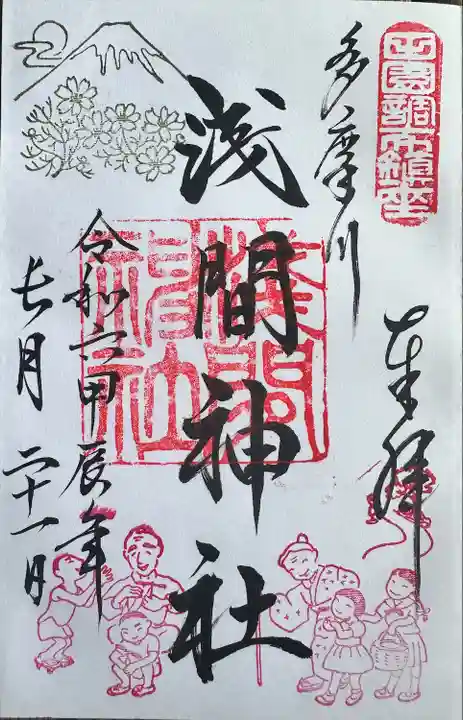 田園調布鎮座
奉拝
多摩川
浅間神社
浅間神社
令和六甲辰年
七月二十一日